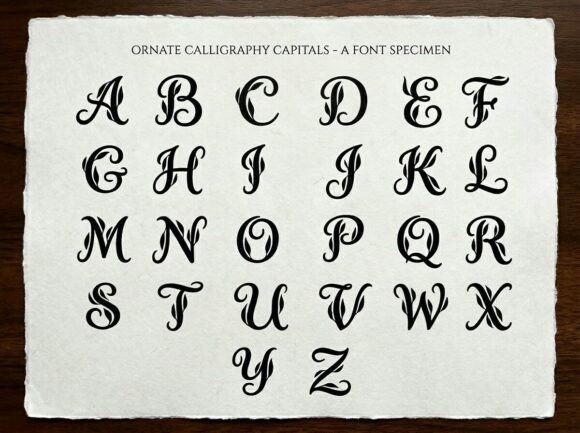 ORNATE CALLIGRAPHY CAPITALS - A FONT SPECIMEN
A B C D E F
G H I J K L
M N O P Q R
S T U V W X
Y Z